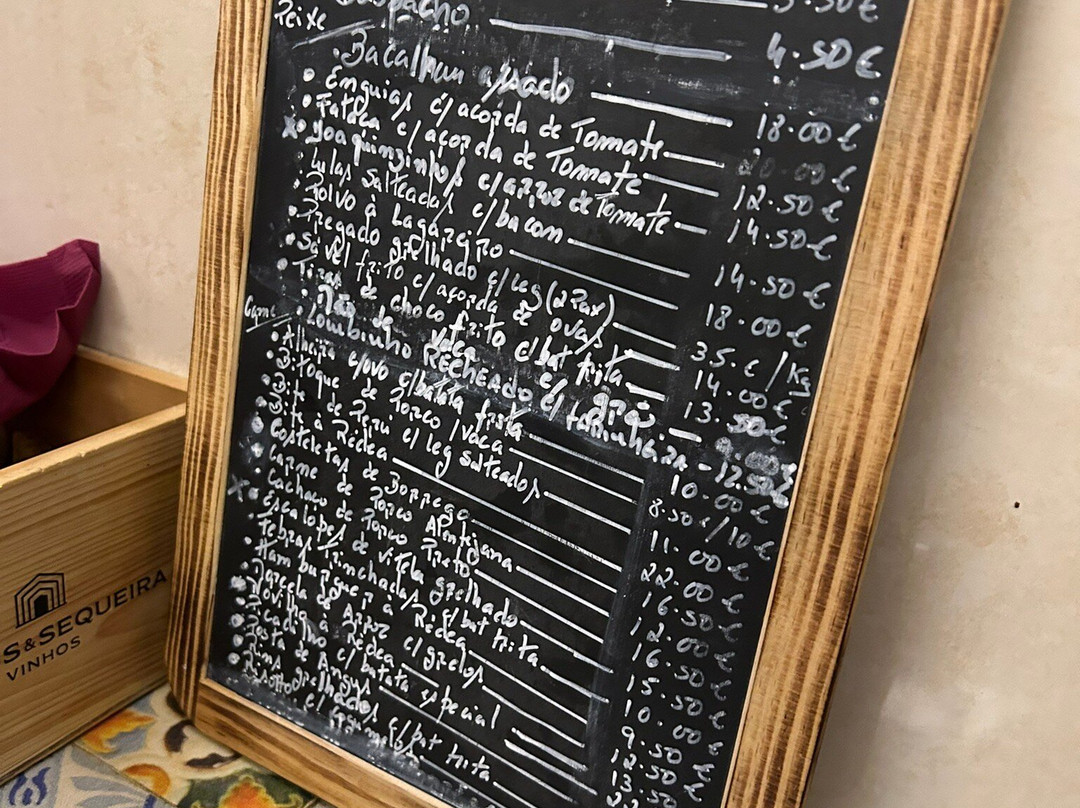 Gaspacho 4.50€
Peixe
Bacalhau assado 18.00€
Enguias c/ açorda de Tomate 20.00€
Fataça c/ açorda de Tomate 12.50€
Joaquinzinhos c/ arroz de Tomate 14.50€
Lulas Salteadas c/ bacon 14.50€
Polvo à Lagareiro 18.00€
Pregado grelhado c/ leg (2 Pax) 35.€/Kg
Sável frito c/ açorda de ovas 14.00€
Tiras de choco frito c/ bat frita 13.50€
Carne
Mão de Vaca c/ grão 9.00€
Lombinho RECHEADO c/ farinheira - 12.50€
Alheira c/ovo c/batata frita 10.00€
Bitoque de Porco / Vaca 8.50€/10€
Bife de Peru c/ leg salteados 11.00€
Bife à Rédea 22.00€
Costeletas de Borrego 16.50€
Carne de Porco Alentejana 12.00€
Cachaço de Porco Preto 16.50€
Escalopes de vitela grelhado 15.50€
Febras Trinchadas c/ bat frita 10.00€
Hamburguer à Rédea 9.50€
Panela de Arroz c/ grelos 12.50€
Novilho à Rédea 13.50
c/ batata especial
de Angus
Rins grelhados c/ bat frita
c/ cogumelos
S&SEQUEIRA
VINHOS